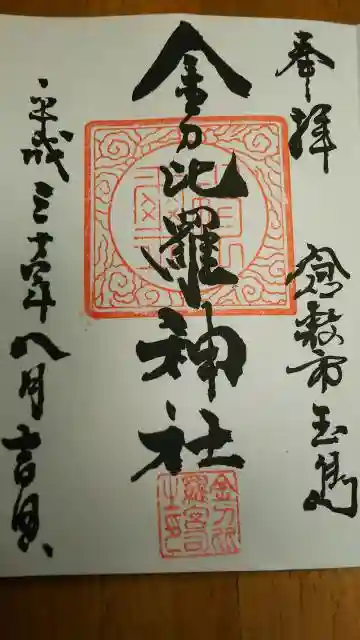 奉拝
倉敷市玉島
金刀比羅神社
平成三十年八月吉日